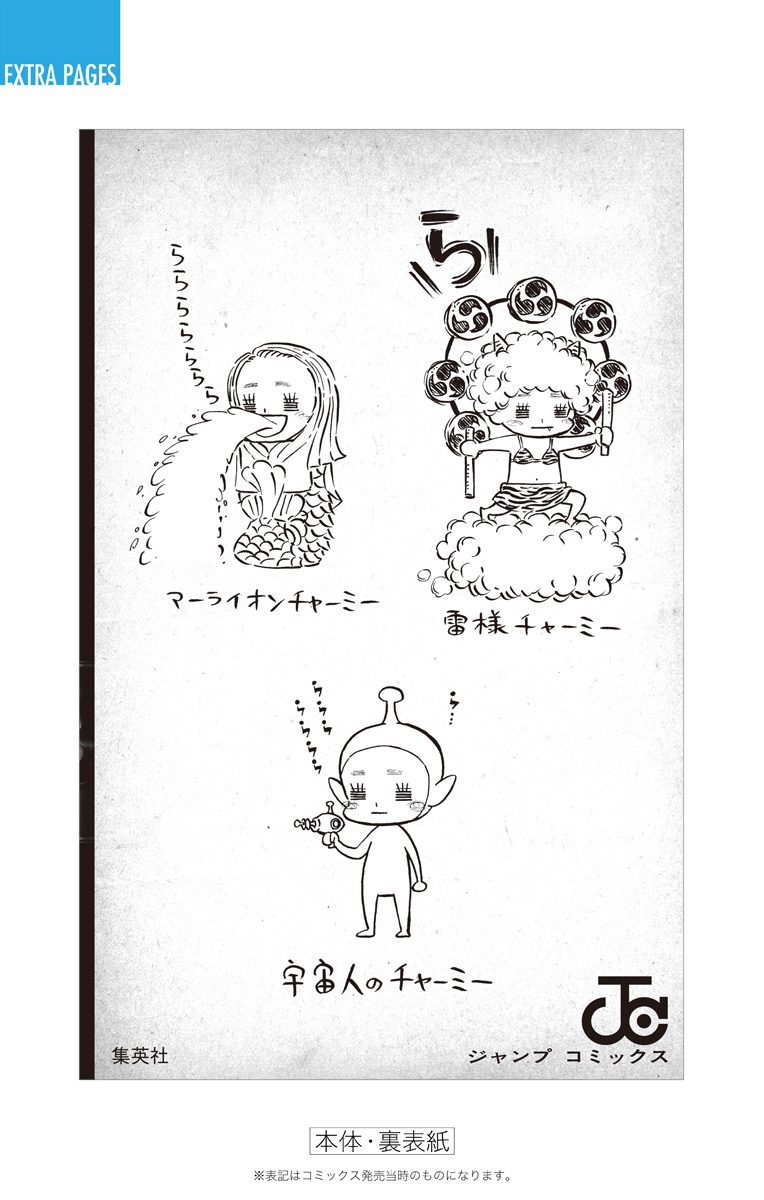 EXTRA PAGES
ら
らららららららら
マーライオンチャーミー
雷様チャーミー
ららら
らららら
ら…
宇宙人のチャーミー
JC
集英社
ジャンプ コミックス
本体・裏表紙
※表記はコミックス発売当時のものになります。